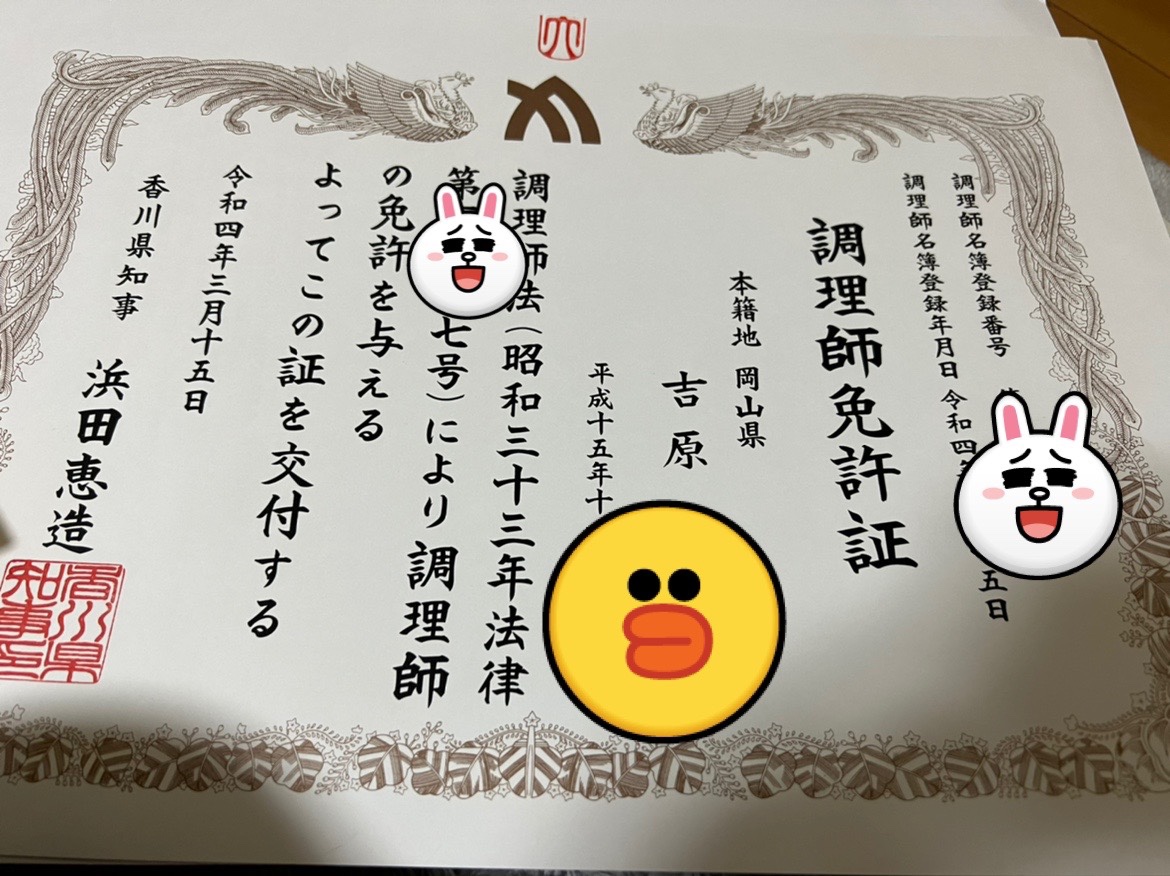 調理師名簿登録番号
調理師名簿登録年月日 令和四年 五日
調理師免許証
本籍地 岡山県
吉原
平成十五年十
調理師法（昭和三十三年法律
第 七号）により調理師
の免許を与える
よってこの証を交付する
令和四年三月十五日
香川県知事
浜田恵造
香川県
知事之印